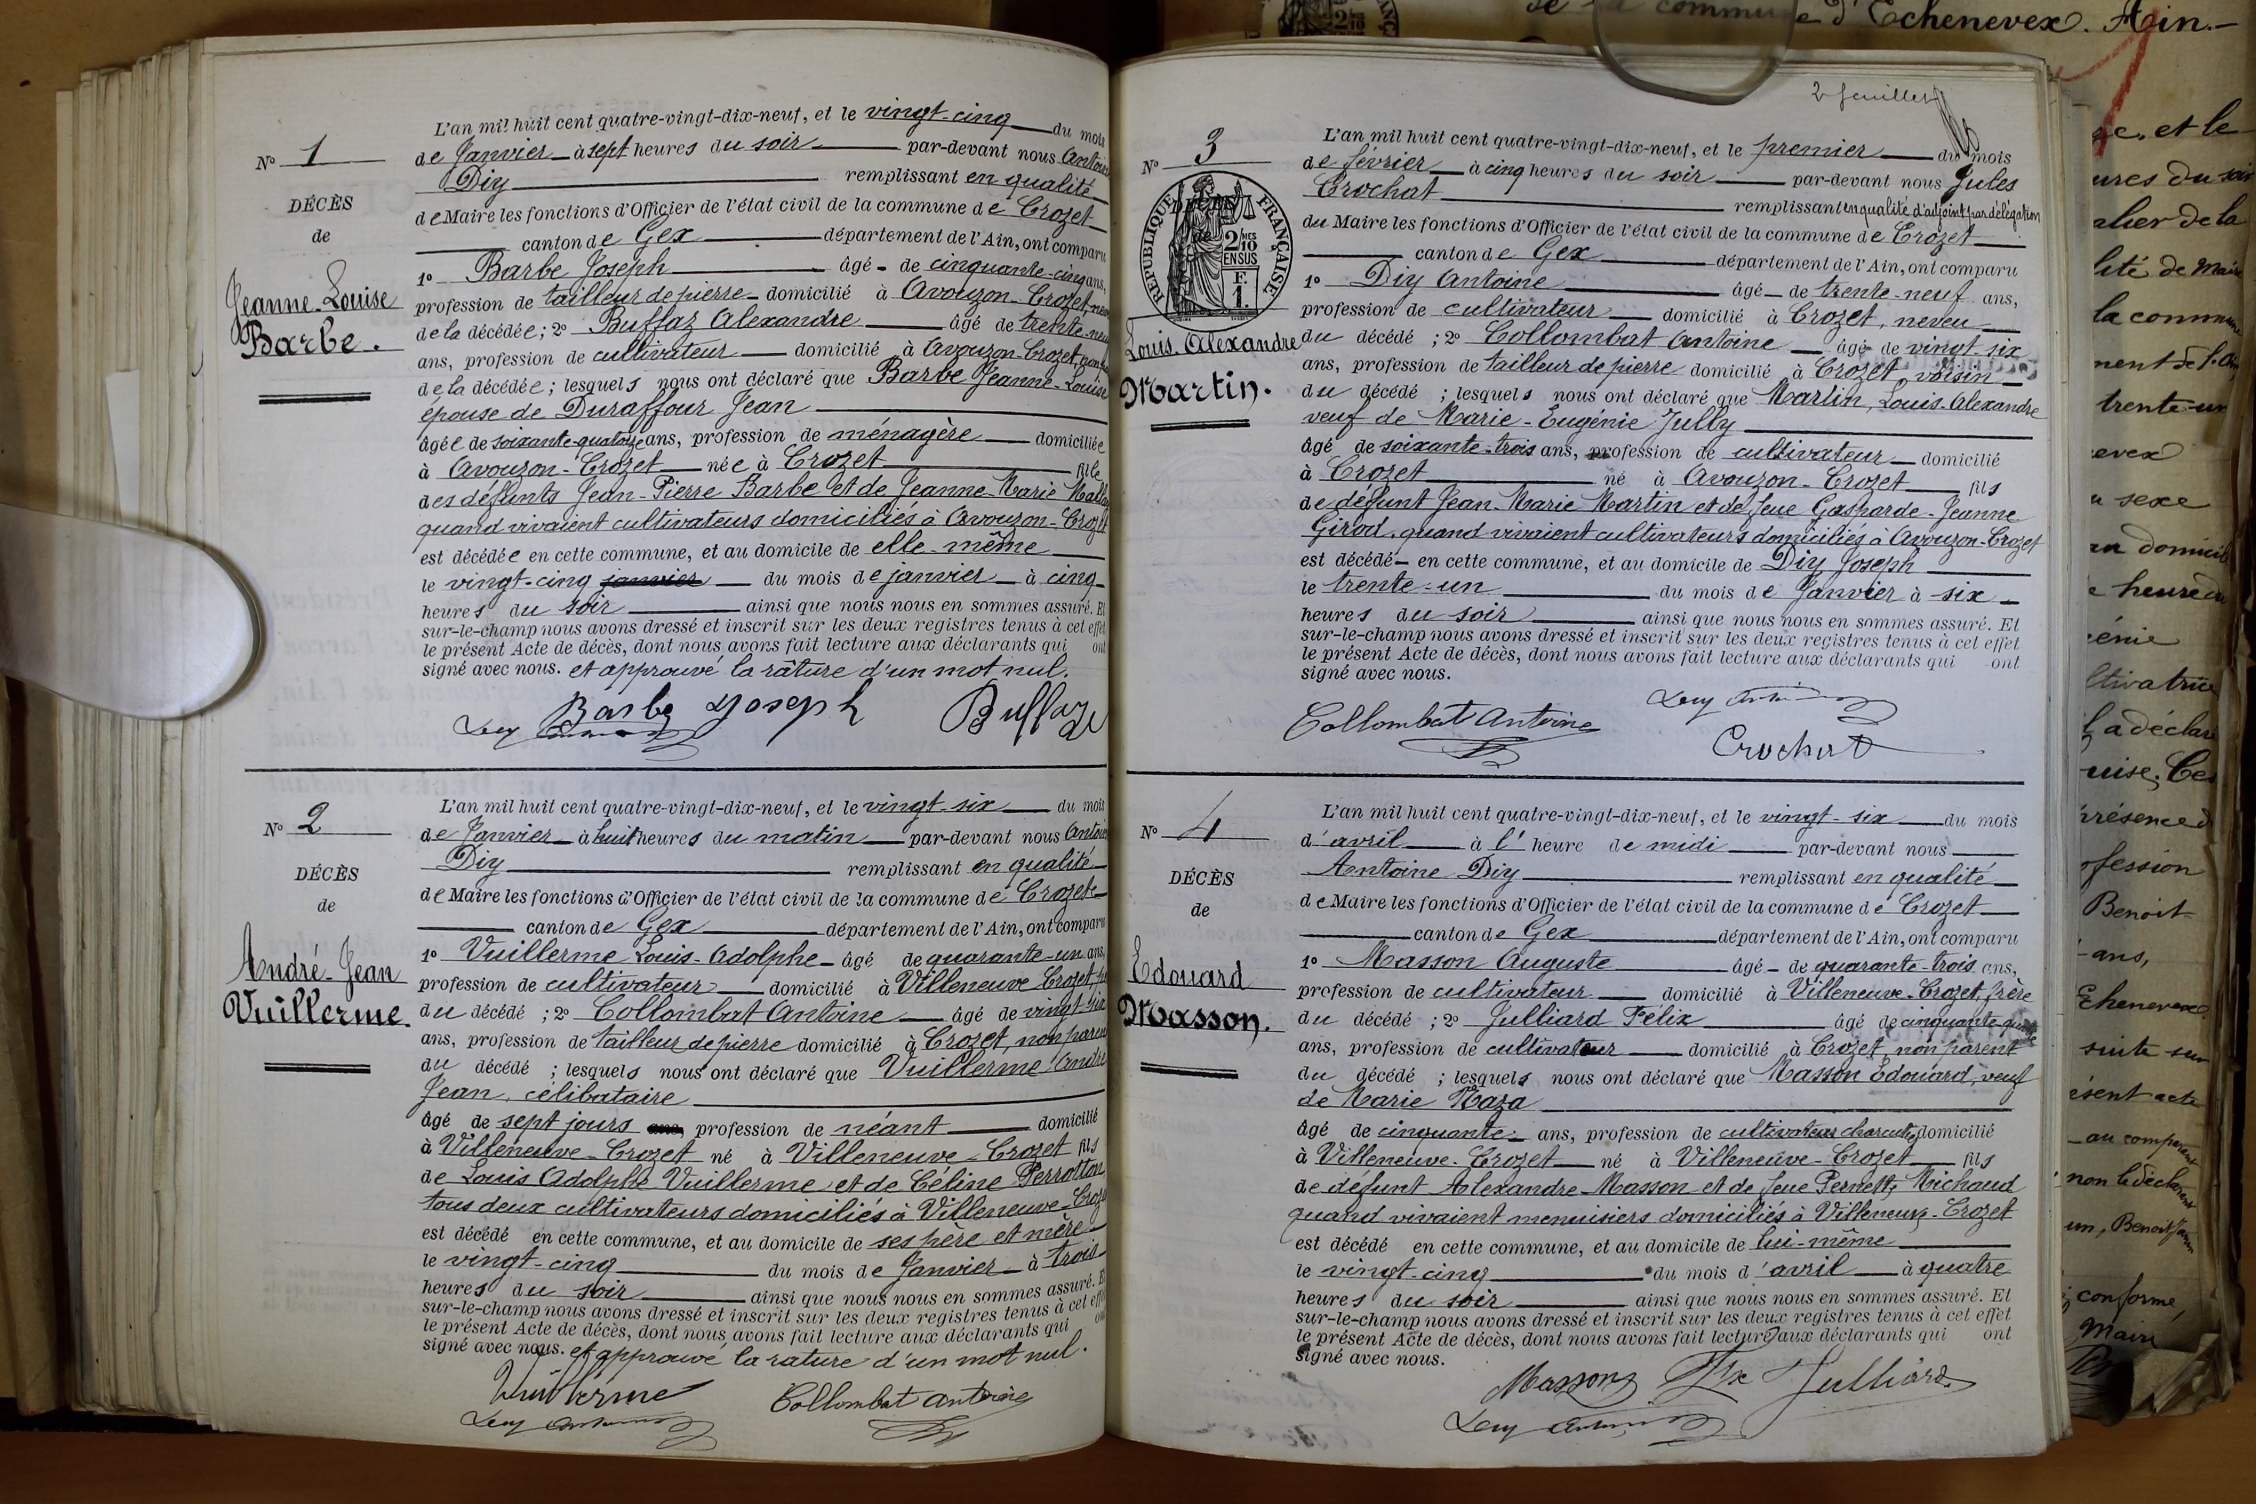 N° 1
DÉCÈS
de
Jeanne-Louise
Barbe.
L'an mil huit cent quatre-vingt-dix-neuf, et le vingt-cinq du mois
de Janvier à sept heures du soir par-devant nous Antoine
Diy remplissant en qualité
de Maire les fonctions d'Officier de l'état civil de la commune de Crozet
canton de Gex département de l'Ain, ont comparu
1° Barbe Joseph âgé de cinquante-cinq ans,
profession de tailleur de pierre domicilié à Avouzon-Crozet,
de la décédée; 2° Buffaz Alexandre âgé de trente-neuf
ans, profession de cultivateur domicilié à Avouzon-Crozet,
de la décédée; lesquels nous ont déclaré que Barbe Jeanne-Louise
épouse de Duraffour Jean
âgée de soixante-quatorze ans, profession de ménagère domiciliée
à Avouzon-Crozet née à Crozet fille
des défunts Jean-Pierre Barbe et de Jeanne-Marie
quand vivaient cultivateurs domiciliés à Avouzon-Crozet
est décédée en cette commune, et au domicile de elle-même
le vingt-cinq janvier du mois de janvier à cinq
heures du soir ainsi que nous nous en sommes assuré. Et
sur-le-champ nous avons dressé et inscrit sur les deux registres tenus à cet effet
le présent Acte de décès, dont nous avons fait lecture aux déclarants qui ont
signé avec nous. et approuvé la râture d'un mot nul.
Barbe Joseph Buffaz
N° 2
DÉCÈS
de
André-Jean
Vuillerme.
L'an mil huit cent quatre-vingt-dix-neuf, et le vingt-six du mois
de Janvier à huit heures du matin par-devant nous Antoine
Diy remplissant en qualité
de Maire les fonctions d'Officier de l'état civil de la commune de Crozet
canton de Gex département de l'Ain, ont comparu
1° Vuillerme Louis-Adolphe âgé de quarante-un ans,
profession de cultivateur domicilié à Villeneuve Crozet,
du décédé ; 2° Collombat Antoine âgé de vingt-six
ans, profession de tailleur de pierre domicilié à Crozet, non parent
du décédé ; lesquels nous ont déclaré que Vuillerme André
Jean, célibataire
âgé de sept jours ans, profession de néant domicilié
à Villeneuve-Crozet né à Villeneuve-Crozet fils
de Louis Adolphe Vuillerme et de Céline Perrotton
tous deux cultivateurs domiciliés à Villeneuve-Crozet
est décédé en cette commune, et au domicile de ses père et mère
le vingt-cinq du mois de Janvier à trois
heures du soir ainsi que nous nous en sommes assuré. Et
sur-le-champ nous avons dressé et inscrit sur les deux registres tenus à cet effet
le présent Acte de décès, dont nous avons fait lecture aux déclarants qui ont
signé avec nous. et approuvé la rature d'un mot nul.
Vuillerme Collombat Antoine
2e feuillet
N° 3
RÉPUBLIQUE FRANÇAISE
2/10 MES
EN SUS
F.
1.
DÉCÈS
de
Louis-Alexandre
Martin.
L'an mil huit cent quatre-vingt-dix-neuf, et le premier du mois
de février à cinq heures du soir par-devant nous Jules
Crochat remplissant en qualité d'adjoint par délégation
du Maire les fonctions d'Officier de l'état civil de la commune de Crozet
canton de Gex département de l'Ain, ont comparu
1° Diy Antoine âgé de trente-neuf ans,
profession de cultivateur domicilié à Crozet, neveu
du décédé ; 2° Collombat Antoine âgé de vingt-six
ans, profession de tailleur de pierre domicilié à Crozet, voisin
du décédé ; lesquels nous ont déclaré que Martin, Louis-Alexandre
veuf de Marie-Eugénie Jully
âgé de soixante-trois ans, profession de cultivateur domicilié
à Crozet né à Avouzon-Crozet fils
de défunt Jean-Marie Martin et de feue Gasparde-Jeanne
Girod, quand vivaient cultivateurs domiciliés à Avouzon-Crozet
est décédé en cette commune, et au domicile de Diy Joseph
le trente-un du mois de Janvier à six
heures du soir ainsi que nous nous en sommes assuré. Et
sur-le-champ nous avons dressé et inscrit sur les deux registres tenus à cet effet
le présent Acte de décès, dont nous avons fait lecture aux déclarants qui ont
signé avec nous.
Collombat Antoine
Crochat
N° 4
DÉCÈS
de
Edouard
Masson.
L'an mil huit cent quatre-vingt-dix-neuf, et le vingt-six du mois
d'avril à l'heure de midi par-devant nous
Antoine Diy remplissant en qualité
de Maire les fonctions d'Officier de l'état civil de la commune de Crozet
canton de Gex département de l'Ain, ont comparu
1° Masson Auguste âgé de quarante-trois ans,
profession de cultivateur domicilié à Villeneuve-Crozet, frère
du décédé ; 2° Julliard Félix âgé de cinquante-quatre
ans, profession de cultivateur domicilié à Crozet non parent
du décédé ; lesquels nous ont déclaré que Masson Edouard, veuf
de Marie Maza
âgé de cinquante ans, profession de cultivateur charcutier domicilié
à Villeneuve-Crozet né à Villeneuve-Crozet fils
de défunt Alexandre Masson et de feue Pernette Michaud
quand vivaient menuisiers domiciliés à Villeneuve-Crozet
est décédé en cette commune, et au domicile de lui-même
le vingt-cinq du mois d'avril à quatre
heures du soir ainsi que nous nous en sommes assuré. Et
sur-le-champ nous avons dressé et inscrit sur les deux registres tenus à cet effet
le présent Acte de décès, dont nous avons fait lecture aux déclarants qui ont
signé avec nous.
Masson Fx Julliard
commune d'Echenevex. Ain.
et le
ures du soir
lité de Maire
la commune
trente-un
evex
sexe
au domicile
heure du
énie
ltivatrice
a déclaré
uise. Ces
présence d
ofession
Benoit
ans,
Echenevex
suite sur
ésent acte
au comparant
non le déclarant
un, Benoit
conforme,
Maire